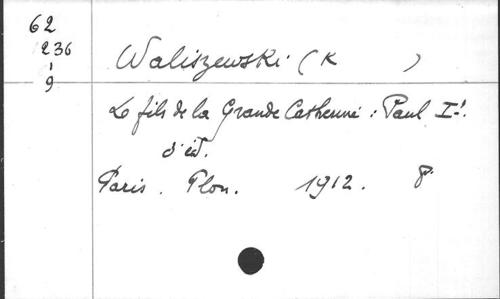 62
236
1
9
Waliszewski (K )
Le fils de la Grande Catherine : Paul Ier.
éd.
Paris. Plon. 1912. 8°